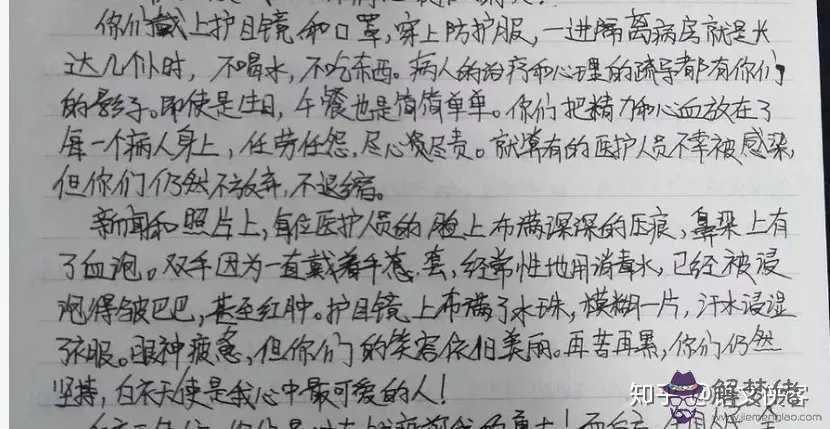 你们戴上护目镜和口罩,穿上防护服,一进隔离病房就是长
达几个小时,不喝水,不吃东西。病人的治疗和心理的疏导都有你们
的影子。即使是生日,午餐也是简简单单。你们把精力和心血放在了
每一个病人身上,任劳任怨,尽心尽责。就算有的医护人员不幸被感染,
但你们仍然不放弃,不退缩。
新闻和照片上,每位医护人员的脸上布满深深的压痕,鼻梁上有
了血泡。双手因为一直戴着手套,经常性地用消毒水,已经被浸
泡得皱巴巴,甚至红肿。护目镜上布满了水珠,模糊一片,汗水浸湿
了衣服。眼神疲惫,但你们的笑容依旧美丽。再苦再累,你们仍然
坚持,白衣天使是我心中最可爱的人!
知乎
解梦佬
www.jiemenglao.com